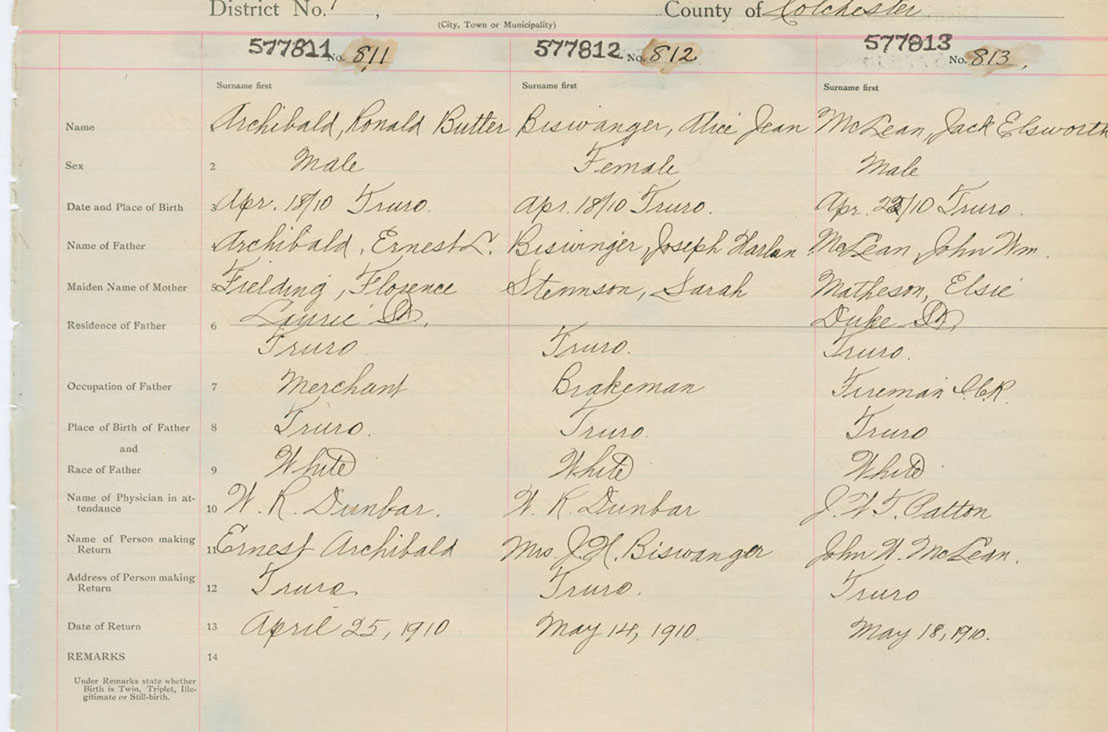 District No. 1, County of Colchester
(City, Town or Municipality)
577811 No. 811 577812 No. 812 577813 No. 813.
Surname first Surname first Surname first
Name Archibald, Ronald Butter Biswanger, Alice Jean McLean, Jack Elsworth
Sex 2 Male Female Male
Date and Place of Birth 3 Apr. 18/10 Truro. Apr. 18/10 Truro. Apr. 22/10 Truro.
Name of Father Archibald, Ernest L. Biswinger, Joseph Harlan McLean, John Wm.
Maiden Name of Mother 5 Fielding, Florence Stennson, Sarah Matheson, Elsie
Residence of Father 6 Laurie St. Duke St
Truro. Truro. Truro.
Occupation of Father 7 Merchant Brakeman Fireman I.C.R.
Place of Birth of Father 8 Truro. Truro. Truro
and
Race of Father 9 White White White
Name of Physician in at- 10 W. R. Dunbar. W. R. Dunbar J. W. T. Patton
tendance
Name of Person making 11 Ernest Archibald Mrs. J. H. Biswanger John W. McLean.
Return
Address of Person making 12 Truro. Truro. Truro
Return
Date of Return 13 April 25, 1910 May 14, 1910. May 18, 1910.
REMARKS 14
Under Remarks state whether
Birth is Twin, Triplet, Ille-
gitimate or Still-birth.